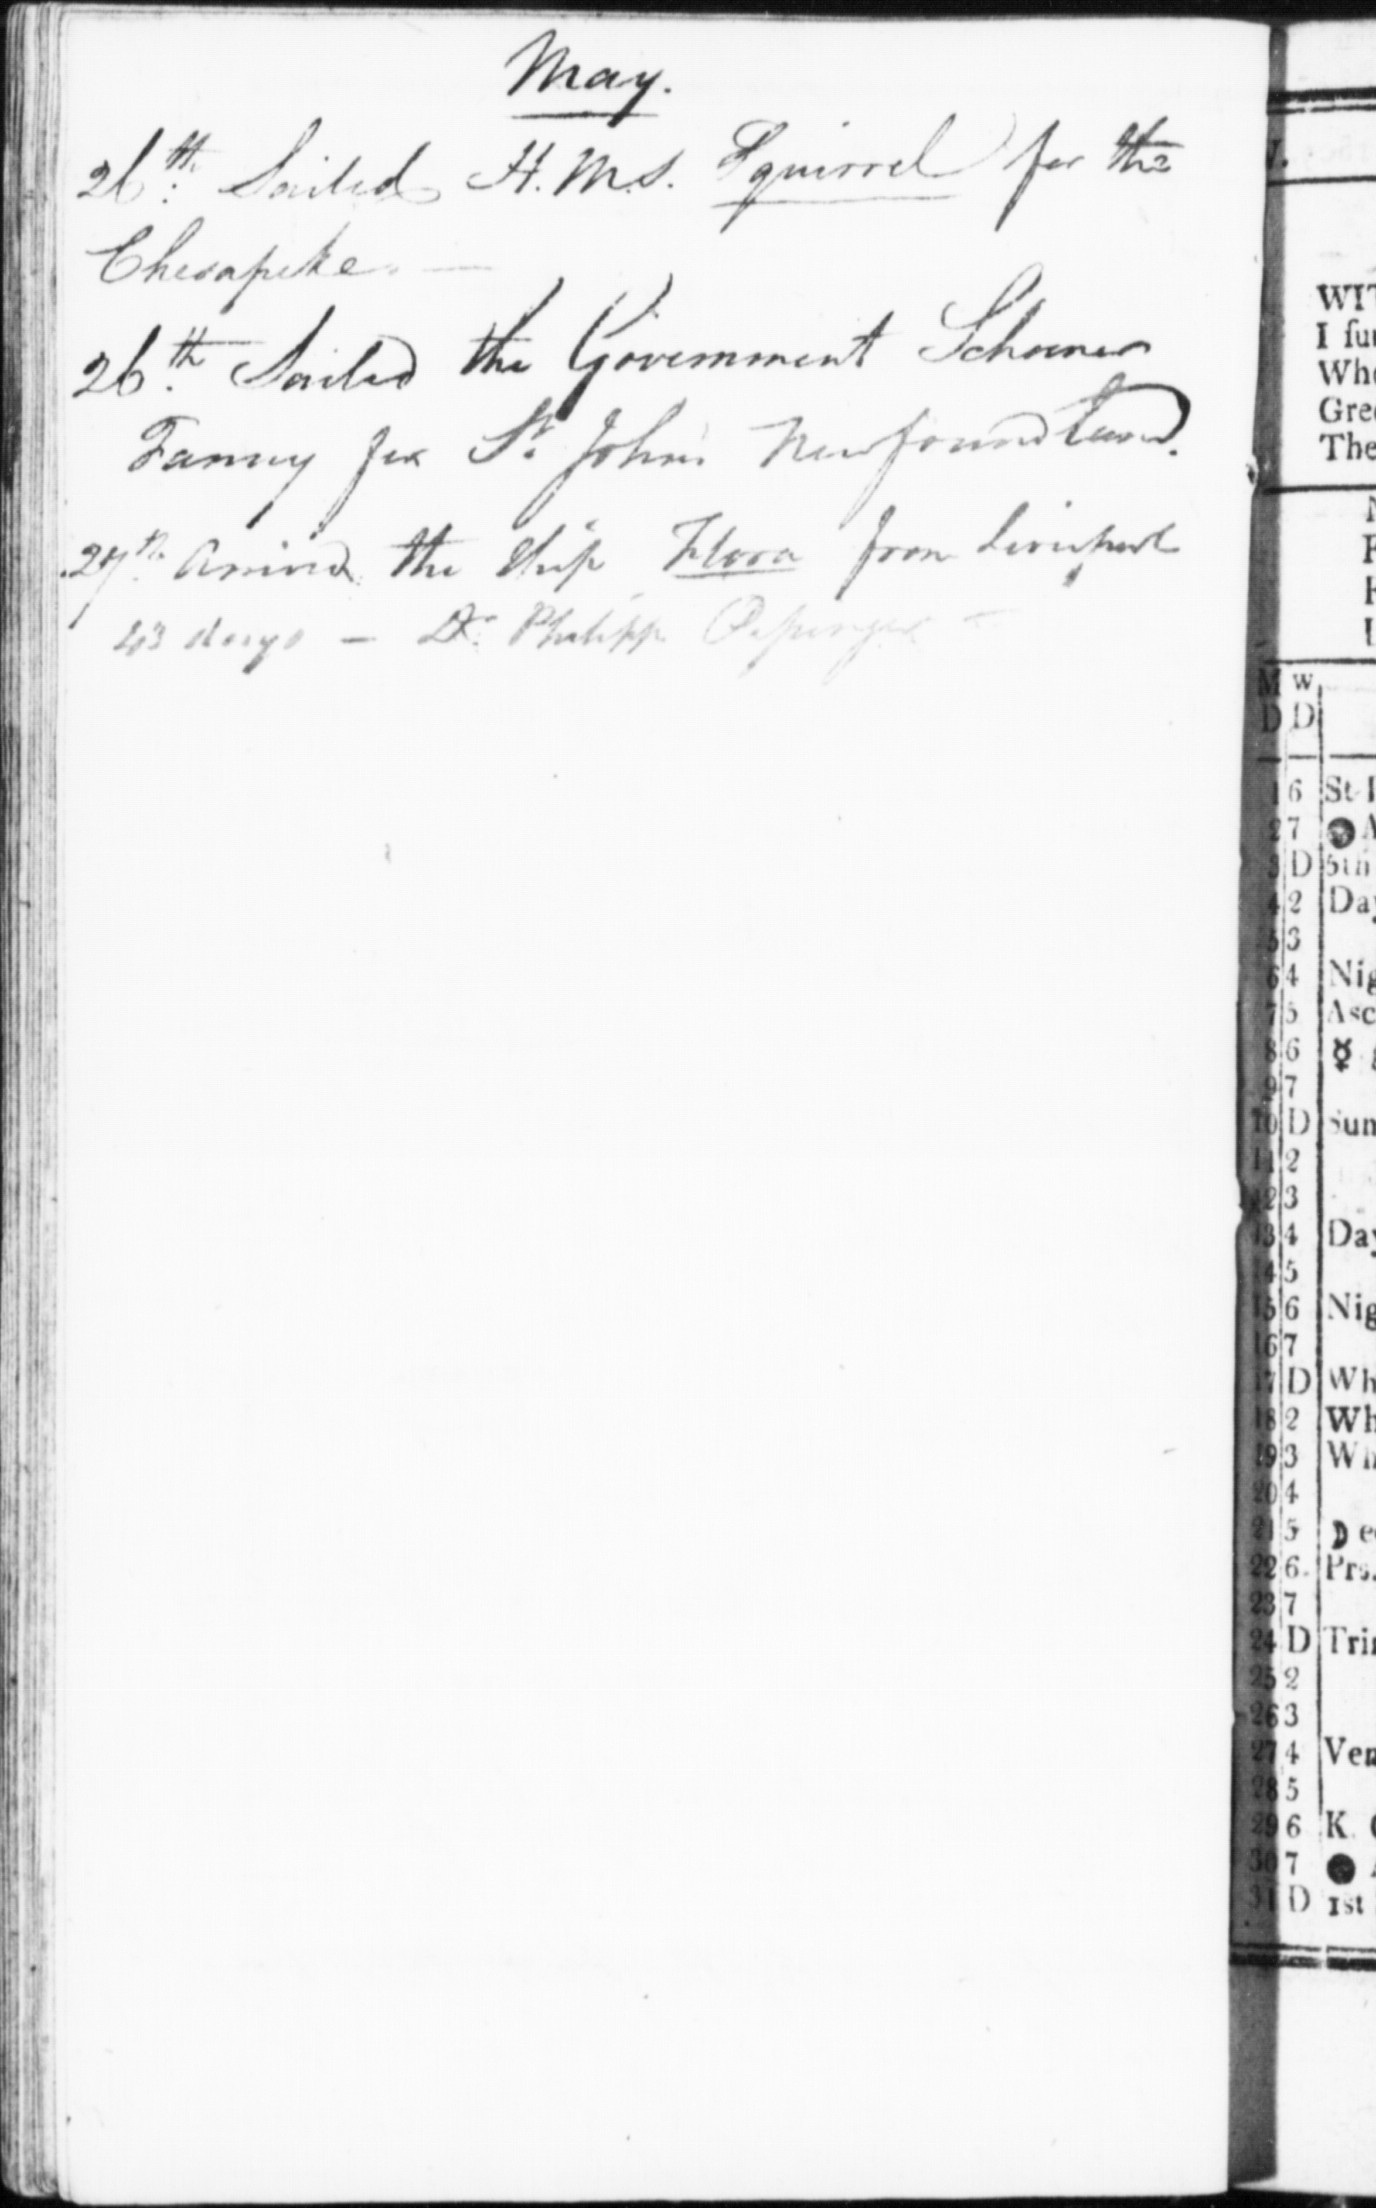 May.
26th. Sailed H.M.S. Squirrel for the
Chesapeke. —
26th. Sailed the Government Schooner
Fanny for St. John's Newfoundland.
27th. Arrived the Ship Flora from Liverpool
43 days — Dr. Philipp
WIT
I fu
Wh
Gre
The
M W
D D
1 6 St
2 7
3 D 5th
4 2 Day
5 3
6 4 Nig
7 5 Asc
8 6 ☿
9 7
10 D Sun
11 2
12 3
13 4 Day
14 5
15 6 Nig
16 7
17 D Wh
18 2 Wh
19 3 Wh
20 4
21 5
22 6 Prs.
23 7
24 D Tri
25 2
26 3
27 4 Ven
28 5
29 6 K.
30 7
31 D 1st